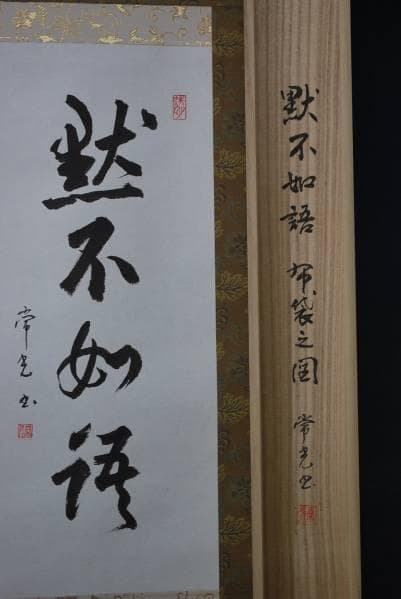 默不如語 布袋之図 常光書
默不如語
常光書